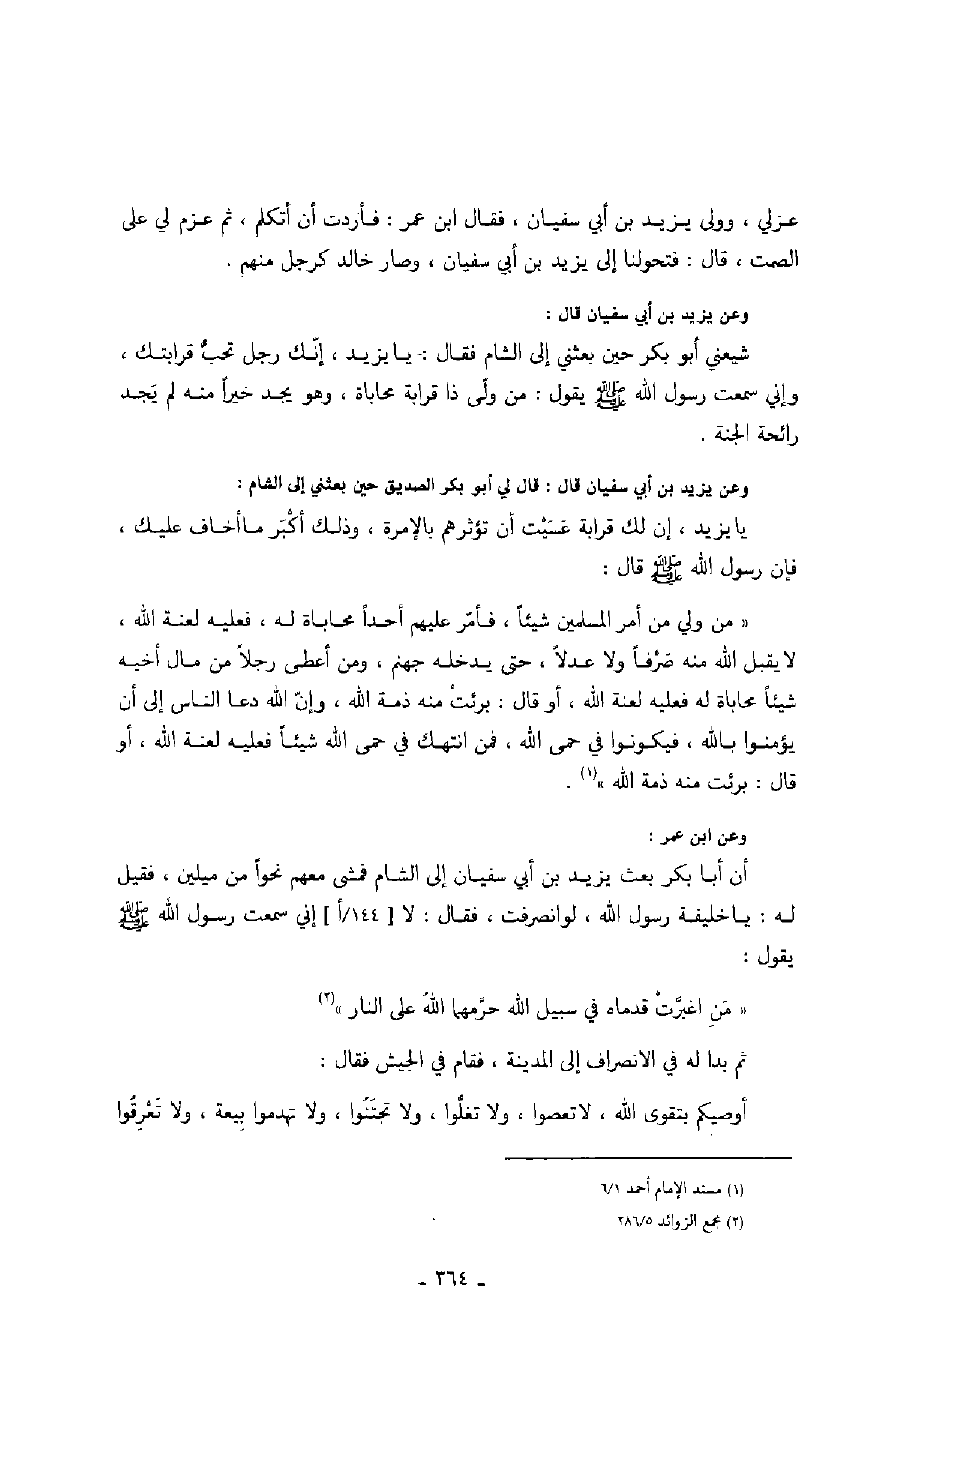 عزلي ، وولى يزيد بن أبي سفيان ، فقال ابن عمر : فأردت أن أتكلم ، ثم عزم لي على
الصمت ، قال : فتحولنا إلى يزيد بن أبي سفيان ، وصار خالد كرجل منهم .
وعن يزيد بن أبي سفيان قال :
شيعني أبو بكر حين بعثني إلى الشام فقال : يا يزيد ، إنّك رجل تحبُّ قرابتك ،
وإني سمعت رسول الله ﷺ يقول : من ولّى ذا قرابة محاباة ، وهو يجد خيراً منه لم يَجد
رائحة الجنة .
وعن يزيد بن أبي سفيان قال : قال لي أبو بكر الصديق حين بعثني إلى الشام :
يا يزيد ، إن لك قرابة عَسَيْت أن تؤثرهم بالإمرة ، وذلك أكْبَر ما أخاف عليك ،
فإن رسول الله ﷺ قال :
« من ولي من أمر المسلمين شيئاً ، فأمّر عليهم أحداً محاباة له ، فعليه لعنة الله ،
لا يقبل الله منه صَرْفاً ولا عدلاً ، حتى يدخله جهنم ، ومن أعطى رجلاً من مال أخيه
شيئاً محاباة له فعليه لعنة الله ، أو قال : برئتْ منه ذمة الله ، وإنّ الله دعا الناس إلى أن
يؤمنوا بالله ، فيكونوا في حمى الله ، فمن انتهك في حمى الله شيئاً فعليه لعنة الله ، أو
قال : برئت منه ذمة الله »(١) .
وعن ابن عمر :
أن أبا بكر بعث يزيد بن أبي سفيان إلى الشام فمشى معهم نحواً من ميلين ، فقيل
له : يا خليفة رسول الله ، لو انصرفت ، فقال : لا [ ١٤٤/أ ] إني سمعت رسول الله ﷺ
يقول :
« مَنِ اغبرَّتْ قدماه في سبيل الله حرَّمها اللهُ على النار »(٢)
ثم بدا له في الانصراف إلى المدينة ، فقام في الجيش فقال :
أوصيكم بتقوى الله ، لا تعصوا ، ولا تغلُّوا ، ولا تجبَّنُوا ، ولا تهدموا بِيعة ، ولا تَعْرِقُوا
(١) مسند الإمام أحمد ٦/١
(٢) مجمع الزوائد ٢٨٦/٥
- ٣٦٤ -